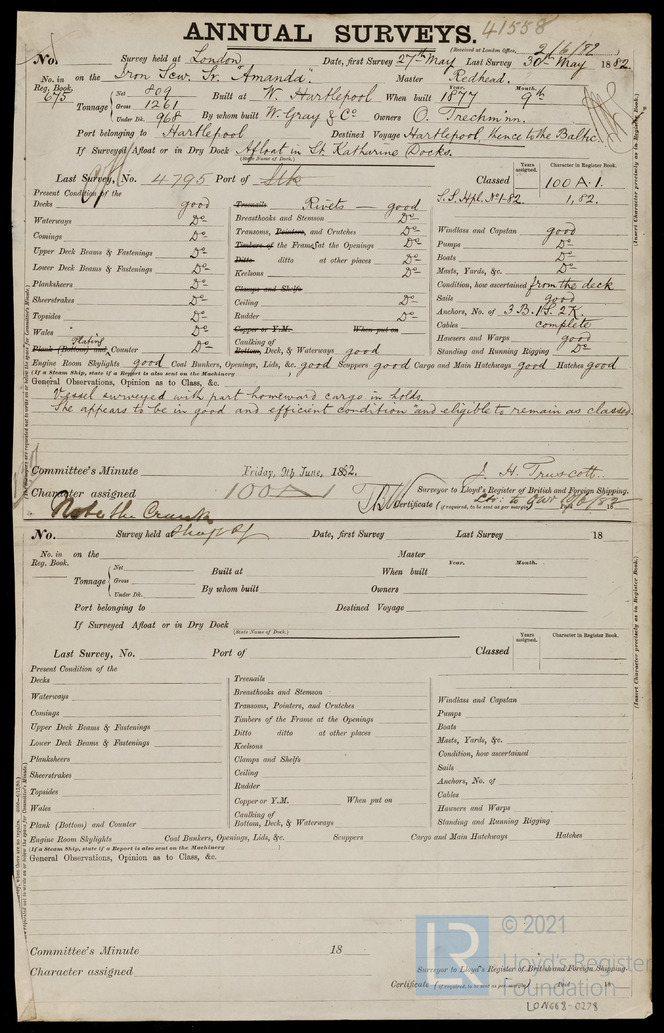 ANNUAL SURVEYS. 41558
(Received at London Office, 2/6/82)
No. Survey held at London Date, first Survey 27th May Last Survey 30th May 1882.
No. in Reg. Book. 675 on the Iron Scw. Sr. "Amanda". Master Redhead.
Tonnage Net 809 Gross 1261 Under Dk. 968 Built at W. Hartlepool When built Year. 1877 Month. 9th
By whom built W. Gray & Co Owners O. Trechmann.
Port belonging to Hartlepool Destined Voyage Hartlepool, thence to the Baltic.
If Surveyed Afloat or in Dry Dock Afloat in St Katharine Docks.
(State Name of Dock.)
Last Survey, No. 4795 Port of Stk Classed Years assigned. Character in Register Book. 100 A.1.
S.S. Hpl. No1-82 1,82.
Present Condition of the
Decks good
Waterways Do
Comings Do
Upper Deck Beams & Fastenings Do
Lower Deck Beams & Fastenings Do
Planksheers Do
Sheerstrakes Do
Topsides Do
Wales Do
Plating
Plank (Bottom) and Counter Do
Treenails Rivets good
Breasthooks and Stemson Do
Transoms, Pointers, and Crutches Do
Timbers of the Frames at the Openings Do
Ditto ditto at other places Do
Keelsons Do
Clamps and Shelfs
Ceiling Do
Rudder Do
Copper or Y.M. When put on
Caulking of Bottom, Deck, & Waterways good
Windlass and Capstan good
Pumps Do
Boats Do
Masts, Yards, &c. Do
Condition, how ascertained from the deck
Sails good
Anchors, No. of 3 B. 1 S. 2 K.
Cables complete
Hawsers and Warps good
Standing and Running Rigging Do
Engine Room Skylights good Coal Bunkers, Openings, Lids, &c. good Scuppers good Cargo and Main Hatchways good Hatches good
(If a Steam Ship, state if a Report is also sent on the Machinery
General Observations, Opinion as to Class, &c.
Vessel surveyed with part homeward cargo in holds.
She appears to be in good and efficient condition and eligible to remain as classed.
Committee's Minute Friday, 9th June, 1882. J. H. Truscott.
Surveyor to Lloyd's Register of British and Foreign Shipping.
Character assigned 100 A 1
Certificate (if required, to be sent as per margin) 18
Note the Crank
Shaft
No. Survey held at Date, first Survey Last Survey 18
No. in Reg. Book. on the Master
Tonnage Net Gross Under Dk. Built at When built Year. Month.
By whom built Owners
Port belonging to Destined Voyage
If Surveyed Afloat or in Dry Dock
(State Name of Dock.)
Last Survey, No. Port of Classed Years assigned. Character in Register Book.
Present Condition of the
Decks
Waterways
Comings
Upper Deck Beams & Fastenings
Lower Deck Beams & Fastenings
Planksheers
Sheerstrakes
Topsides
Wales
Plank (Bottom) and Counter
Treenails
Breasthooks and Stemson
Transoms, Pointers, and Crutches
Timbers of the Frame at the Openings
Ditto ditto at other places
Keelsons
Clamps and Shelfs
Ceiling
Rudder
Copper or Y.M. When put on
Caulking of Bottom, Deck, & Waterways
Windlass and Capstan
Pumps
Boats
Masts, Yards, &c.
Condition, how ascertained
Sails
Anchors, No. of
Cables
Hawsers and Warps
Standing and Running Rigging
Engine Room Skylights Coal Bunkers, Openings, Lids, &c. Scuppers Cargo and Main Hatchways Hatches
(If a Steam Ship, state if a Report is also sent on the Machinery
General Observations, Opinion as to Class, &c.
Committee's Minute 18
Character assigned
Surveyor to Lloyd's Register of British and Foreign Shipping.
Certificate (if required, to be sent as per margin) 18
(Insert Character precisely as in Register Book.)
(Insert Character precisely as in Register Book.)
LR © 2021
Lloyd's Register
Foundation
LON668-0278